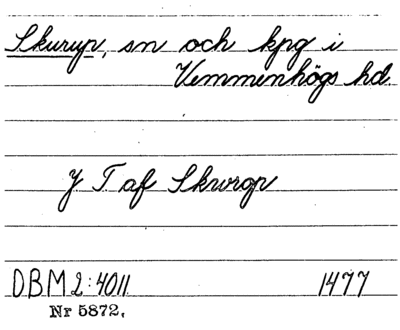 Skurup, sn och kpg i
Vemmenhögs hd.
J T af Skurop
DBM 2:4011 1477
Nr 5872.